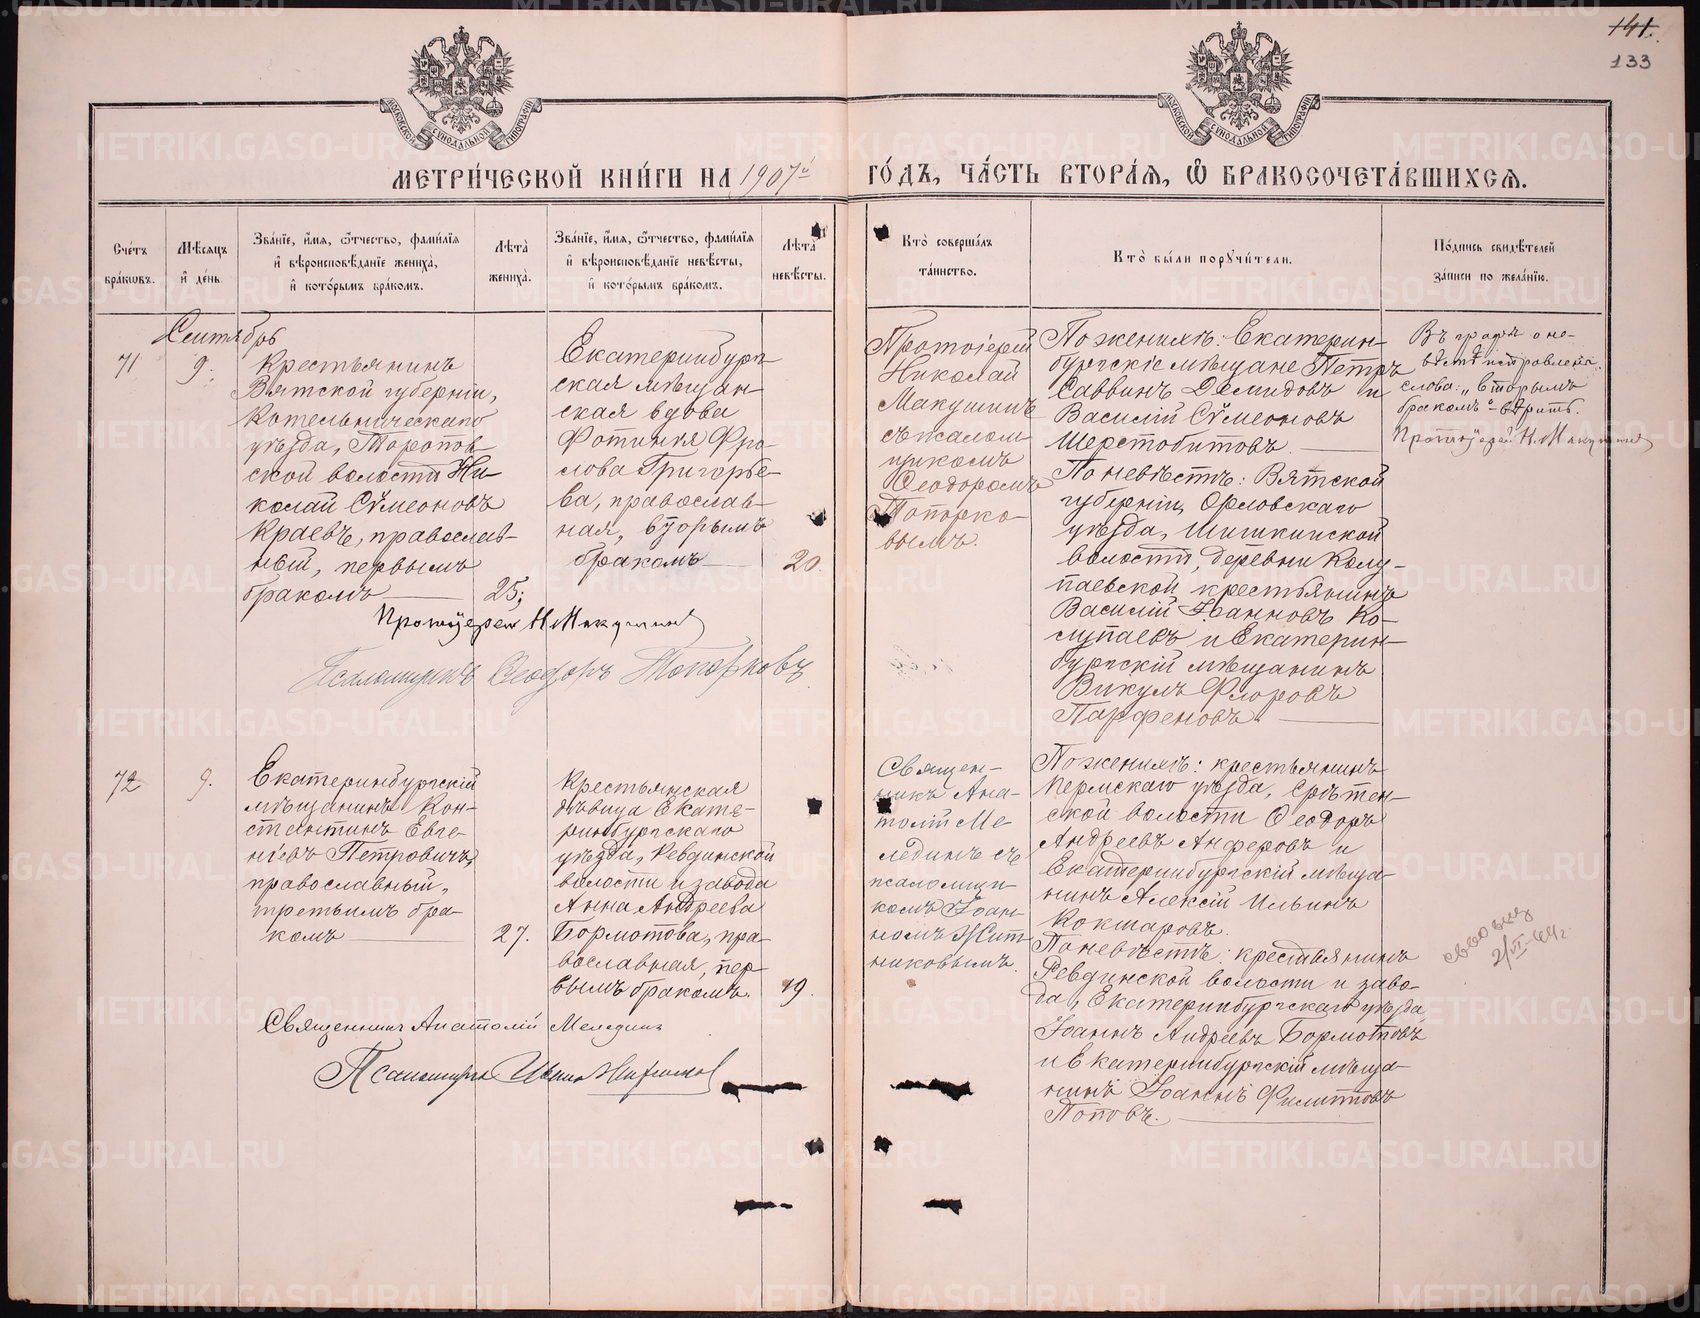 141.
133
МОСКОВСКОЙ СѴНОДАЛЬНОЙ ТИПОГРАФІИ
МОСКОВСКОЙ СѴНОДАЛЬНОЙ ТИПОГРАФІИ
МЕТРИ́ЧЕСКОЙ КНИ́ГИ НА 1907й ГО́ДЪ, ЧА́СТЬ ВТОРА́Я, Ѽ БРАКОСОЧЕТА́ВШИХСЯ.
Сче́тъ бра́кѡвъ.
Мѣ́сяцъ и҆ де́нь.
Зва́нїе, и҆́мя, ѻ҆́тчество, фами́лїя
и҆ вѣроисповѣ́данїе жениха̀,
и҆ кото́рымъ бра́комъ.
Лѣта̀ жениха̀.
Зва́нїе, и҆́мя, ѻ҆́тчество, фами́лїя
и҆ вѣроисповѣ́данїе невѣ́сты,
и҆ кото́рымъ бра́комъ.
Лѣта̀ невѣ́сты.
Кто̀ соверша́лъ
та́инство.
Кто̀ бы́ли порꙋчи́тели.
По́дпись свидѣ́телей
за́писи по жела́нїю.
Сентябрь
71
9.
Крестьянинъ
Вятской губерніи,
Котельническаго
уѣзда, Торопов-
ской волости Ни-
колай Сѵмеоновъ
Краевъ, православ-
ный, первымъ
бракомъ
25;
Екатеринбург-
ская мѣщан-
ская вдова
Фотинія Фро-
лова Григорье-
ва, православ-
ная, вторымъ
бракомъ
20.
Протоіерей
Николай
Макушинъ
съ псалом-
щикомъ
Ѳеодоромъ
Топорко-
вымъ.
По женихѣ: Екатерин-
бургскіе мѣщане Петръ
Саввинъ Демидовъ и
Василій Сѵмеоновъ
Шерстобитовъ.
По невѣстѣ: Вятской
губерніи, Орловскаго
уѣзда, Шишкинской
волости, деревни Колу-
паевской крестьянинъ
Василій Іоанновъ Ко-
лупаевъ и Екатерин-
бургскій мѣщанинъ
Викулъ Флоровъ
Парфеновъ.
Въ графѣ о не-
вѣстѣ исправлена
слова: „вторымъ
бракомъ“ - вѣрить.
Протоіерей Н. Макушинъ
Протоіерей Н Макушинъ
Псаломщикъ Ѳеодоръ Топорковъ.
72
9.
Екатеринбургскій
мѣщанинъ Кон-
стантинъ Евге-
ніевъ Петровичъ,
православный,
третьимъ бра-
комъ
27.
Крестьянская
дѣвица Екате-
ринбургскаго
уѣзда, Ревдинской
волости и завода
Анна Андреева
Бормотова, пра-
вославная, пер-
вымъ бракомъ.
19.
Священ-
никъ Ана-
толій Ме-
лединъ съ
псаломщи-
комъ Іоан-
номъ Жит-
никовымъ.
По женихѣ: крестьянинъ
Пермскаго уѣзда, Срѣтен-
ской волости Ѳеодоръ
Андреевъ Анферовъ и
Екатеринбургскій мѣща-
нинъ Алексій Ильинъ
Кокшаровъ.
По невѣстѣ: крестьянинъ
Ревдинской волости и заво-
да, Екатеринбургскаго уѣзда
Іоаннъ Андреевъ Бормотовъ
и Екатеринбургскій мѣща-
нинъ Іоаннъ Филипповъ
Поповъ.
2/VI-64г.
Священникъ Анатолій Мелединъ
Псаломщикъ Иванъ Житниковъ